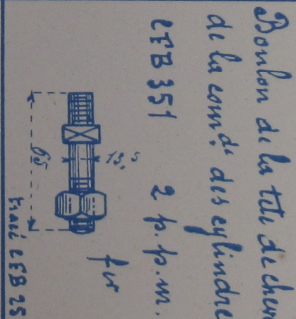 Boulon de la tête de chev
de la comde des cylindre
LEB 351 2 p.p.m.
13,5
fer
tracé LEB 25